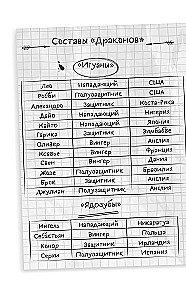 Составы «Драконов»
«Игуаны»
Лео Нападающий США
Робби Полузащитник США
Александро Защитник Коста-Рика
Дайо Нападающий Нигерия
Кайто Нападающий Япония
Гарика Защитник Зимбабве
Оливер Вингер Англия
Ксавье Вингер Франция
Свен Вингер Дания
Жозе Полузащитник Бразилия
Брок Защитник Англия
Джулиан Полузащитник Англия
«Ядозубы»
Мигель Нападающий Никарагуа
Себастьян Вингер Польша
Конор Защитник Ирландия
Серхи Полузащитник Испания